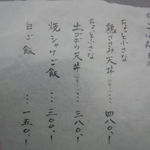 ちょっと小さな
鶏ささみ天丼 … 四八〇.!
ちょっと小さな
天丼 … 三八〇.!
焼シャケご飯 … 三〇〇.!
白ご飯 … 一五〇.!